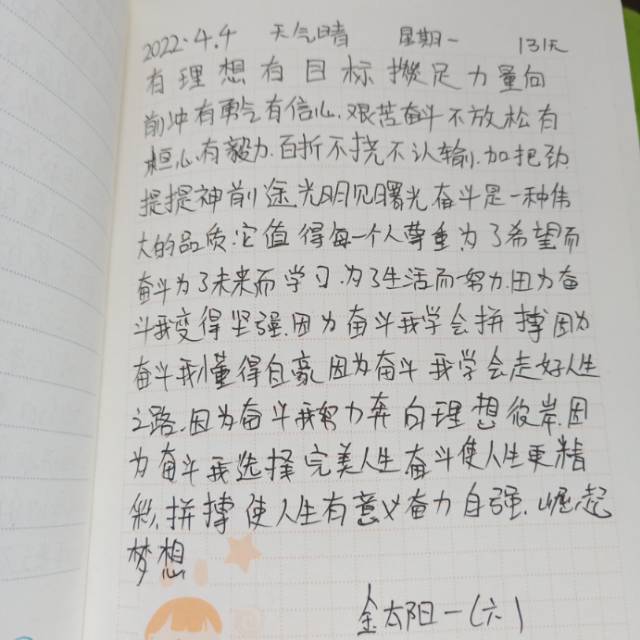 2022.4.4 天气晴 星期一 131天
有理想有目标攒足力量向
前冲有勇气有信心.艰苦奋斗不放松有
恒心.有毅力.百折不挠不认输.加把劲.
提提神前途光明见曙光奋斗是一种伟
大的品质.它值得每一个人尊重.为了希望而
奋斗为了未来而学习.为了生活而努力.因为奋
斗我变得坚强.因为奋斗我学会拼搏因为
奋斗我懂得自豪.因为奋斗我学会走好人生
之路.因为奋斗我努力奔向理想彼岸.因
为奋斗我选择完美人生奋斗使人生更精
彩,拼搏使人生有意义奋力自强.崛起
梦想
金太阳一(六)